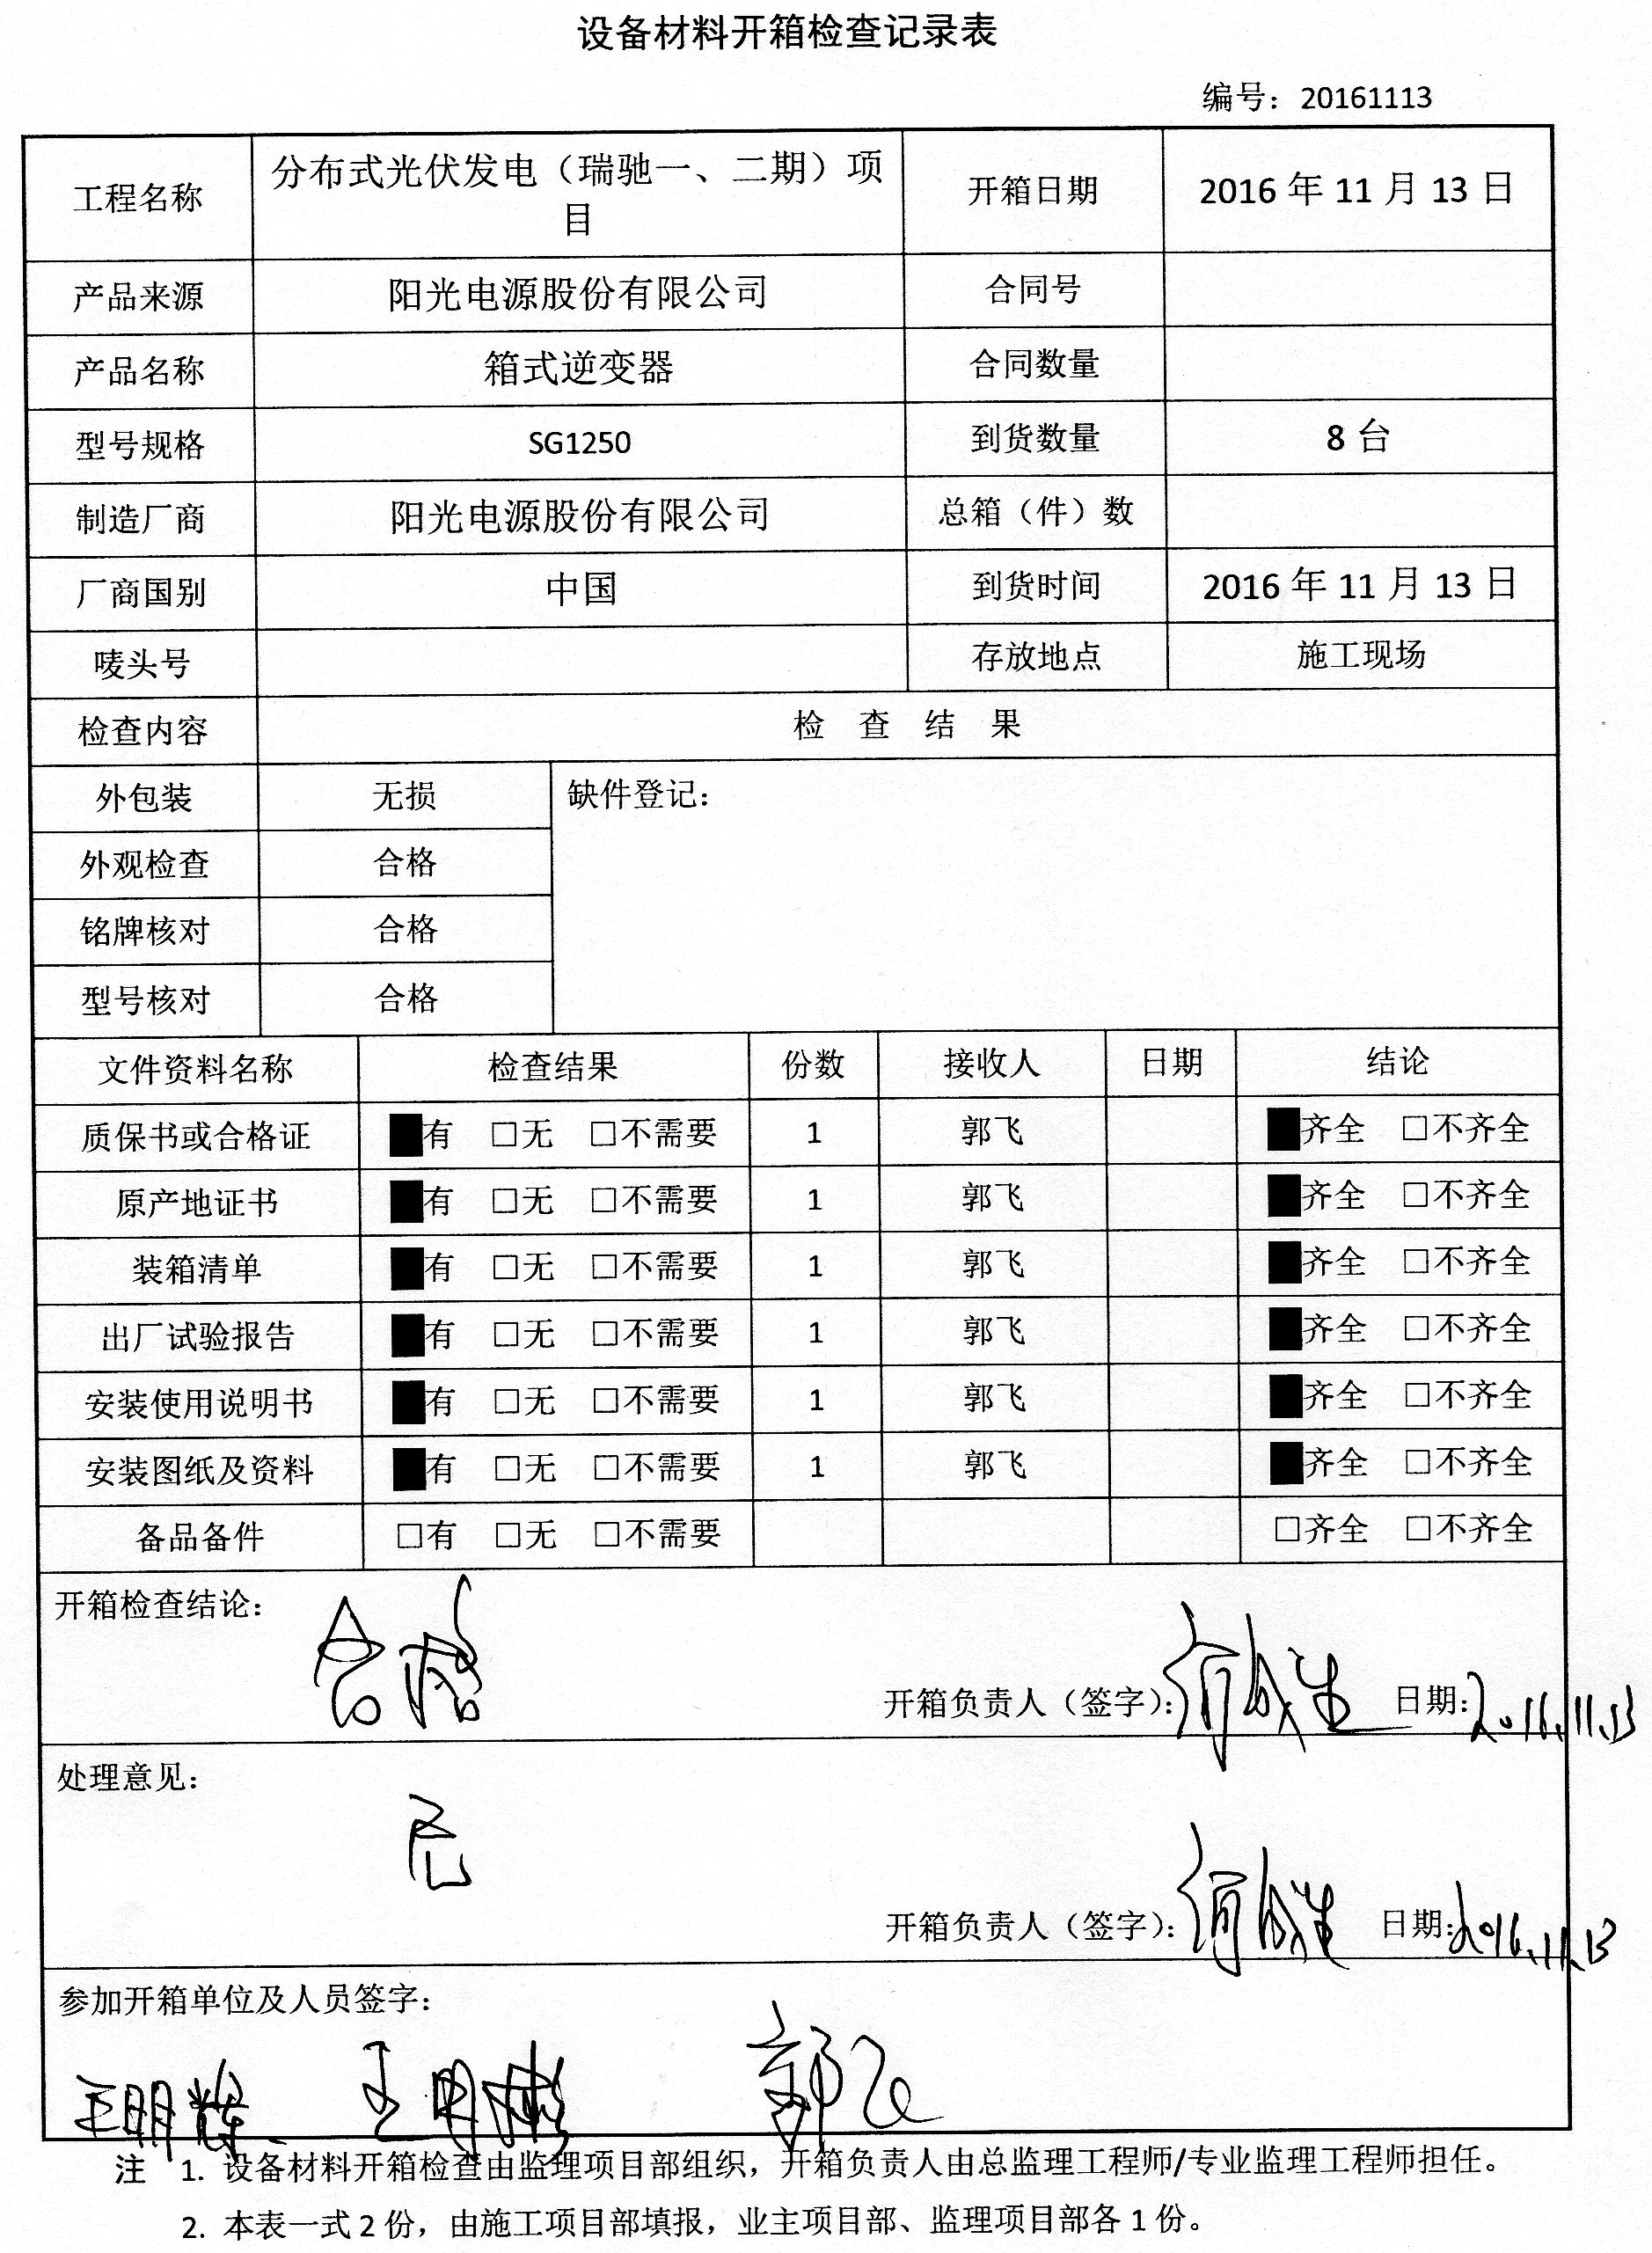 设备材料开箱检查记录表
编号：20161113
工程名称 分布式光伏发电（瑞驰一、二期）项目 开箱日期 2016 年 11 月 13 日
产品来源 阳光电源股份有限公司 合同号
产品名称 箱式逆变器 合同数量
型号规格 SG1250 到货数量 8 台
制造厂商 阳光电源股份有限公司 总箱（件）数
厂商国别 中国 到货时间 2016 年 11 月 13 日
唛头号 存放地点 施工现场
检查内容 检 查 结 果
外包装 无损 缺件登记：
外观检查 合格
铭牌核对 合格
型号核对 合格
文件资料名称 检查结果 份数 接收人 日期 结论
质保书或合格证 ■有 □无 □不需要 1 郭飞 ■齐全 □不齐全
原产地证书 ■有 □无 □不需要 1 郭飞 ■齐全 □不齐全
装箱清单 ■有 □无 □不需要 1 郭飞 ■齐全 □不齐全
出厂试验报告 ■有 □无 □不需要 1 郭飞 ■齐全 □不齐全
安装使用说明书 ■有 □无 □不需要 1 郭飞 ■齐全 □不齐全
安装图纸及资料 ■有 □无 □不需要 1 郭飞 ■齐全 □不齐全
备品备件 □有 □无 □不需要 □齐全 □不齐全
开箱检查结论：
合格
开箱负责人（签字）： 日期：2016.11.13
处理意见：
无
开箱负责人（签字）： 日期：2016.11.13
参加开箱单位及人员签字：
王明辉 王明彬 郭飞
注 1. 设备材料开箱检查由监理项目部组织，开箱负责人由总监理工程师/专业监理工程师担任。
2. 本表一式 2 份，由施工项目部填报，业主项目部、监理项目部各 1 份。